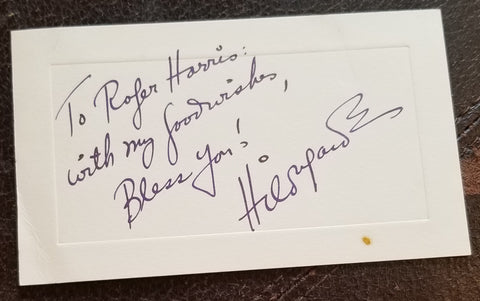 To Roger Harris:
with my goodwishes,
Bless you!
Hildegarde